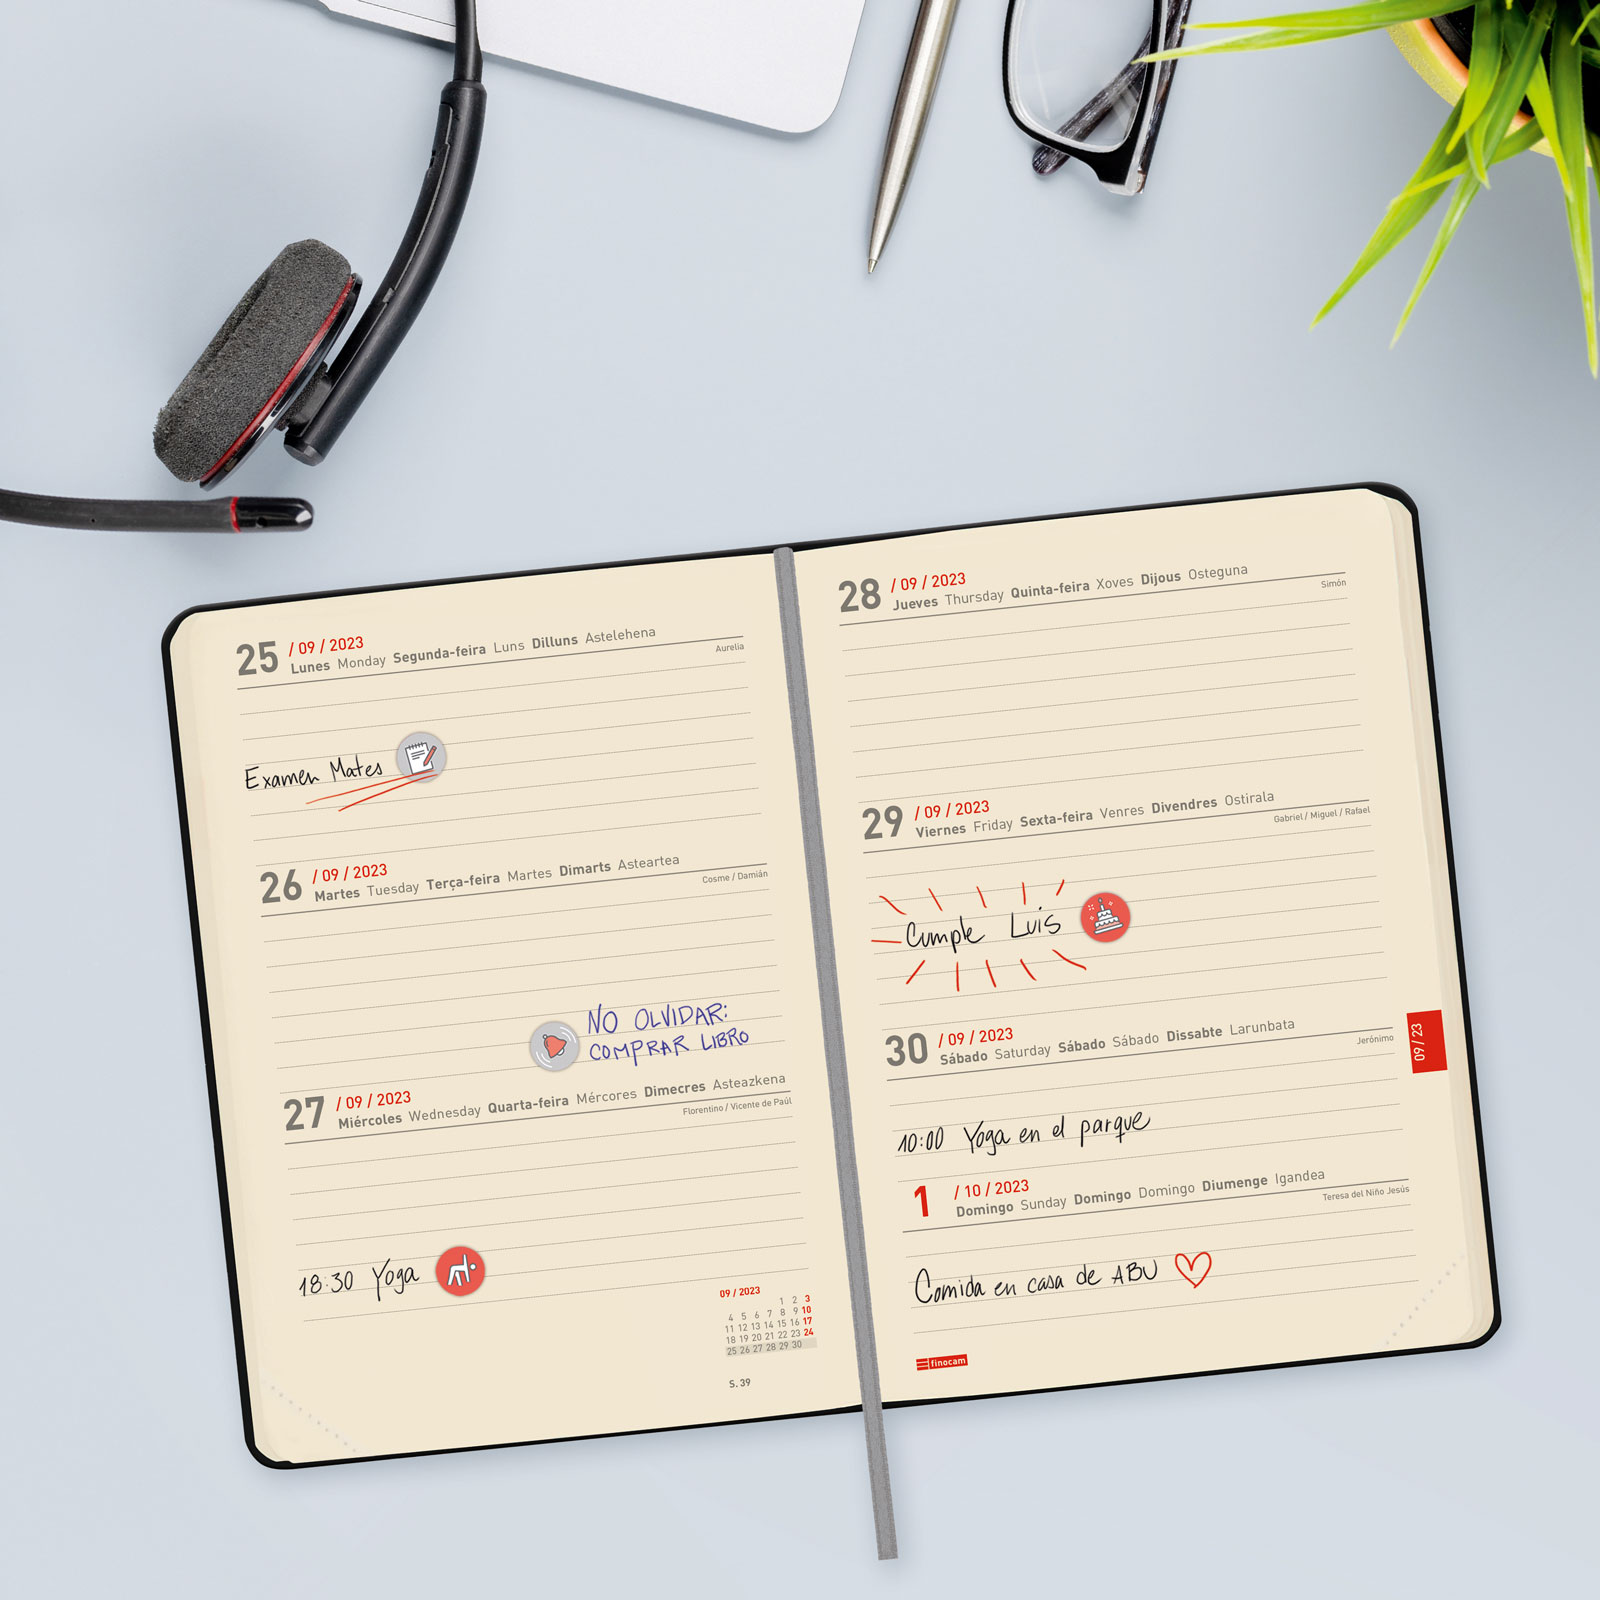 25 / 09 / 2023
Lunes Monday Segunda-feira Luns Dilluns Astelehena
Aurelia
Examen Mates
26 / 09 / 2023
Martes Tuesday Terça-feira Martes Dimarts Asteartea
Cosme / Damián
NO OLVIDAR:
COMPRAR LIBRO
27 / 09 / 2023
Miércoles Wednesday Quarta-feira Mércores Dimecres Asteazkena
Florentino / Vicente de Paúl
18:30 Yoga
09 / 2023
1 2 3
4 5 6 7 8 9 10
11 12 13 14 15 16 17
18 19 20 21 22 23 24
25 26 27 28 29 30
S. 39
28 / 09 / 2023
Jueves Thursday Quinta-feira Xoves Dijous Osteguna
Simón
29 / 09 / 2023
Viernes Friday Sexta-feira Venres Divendres Ostirala
Gabriel / Miguel / Rafael
Cumple Luis
30 / 09 / 2023
Sábado Saturday Sábado Sábado Dissabte Larunbata
Jerónimo
09 / 23
10:00 Yoga en el parque
1 / 10 / 2023
Domingo Sunday Domingo Domingo Diumenge Igandea
Teresa del Niño Jesús
Comida en casa de ABU
finocam